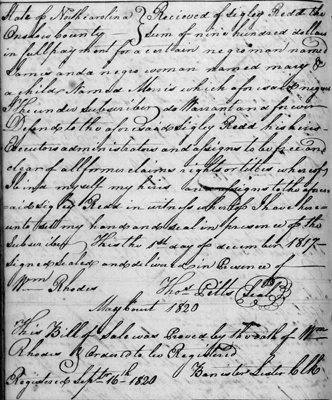 State of North carolina } Recieved of Zigley Redd the
Onslow County } Sum of nine hundred dollars
in full payment for a certain negro man named
and a negro woman named mary &
a child Named which afore said negroes
I the under Subscriber do Warrant and forever
Defend to the afore said Zigley Redd his heirs
Executors administrators and assigns to be free and
clear of all former claims rights or titles whereof
I bind myself my heirs and assigns to the afore
said Zigley Redd in witness whereof I have here
unto set my hand and seal in presence of the
Subscriber This the 1st day of december 1817
Signed Sealed and delivered in Presence of
Wm Rhodes Thos Pitts Seal
May Court 1820
This Bill of Sale was Proved by the oath of Wm
Rhodes & Ordered to be Registered
Registered Septr 16th 1820 Banister Lester Clk